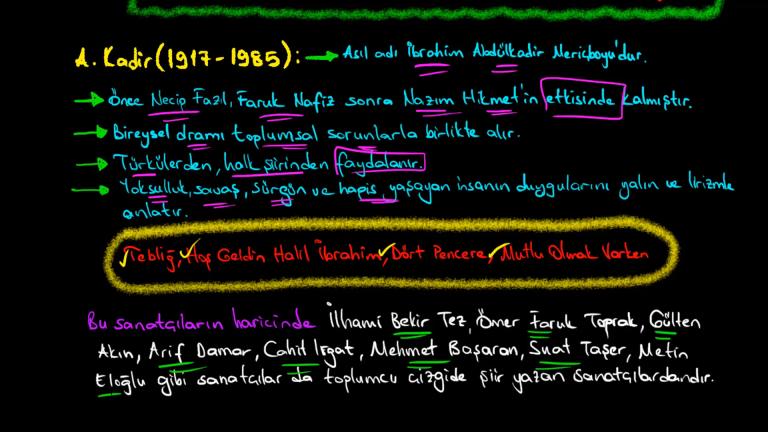 A. Kadir (1917-1985): → Asıl adı İbrahim Abdülkadir Meriçboyu'dur.
→ Önce Necip Fazıl, Faruk Nafiz sonra Nazım Hikmet'in etkisinde kalmıştır.
→ Bireysel dramı toplumsal sorunlarla birlikte alır.
→ Türkülerden, halk şiirinden faydalanır.
→ Yoksulluk, savaş, sürgün ve hapis yaşayan insanın duygularını yalın ve lirizmle
anlatır.
Tebliğ, Hoş Geldin Halil İbrahim, Dört Pencere, Mutlu Olmak Varken
Bu sanatçıların haricinde İlhami Bekir Tez, Ömer Faruk Toprak, Gülten
Akın, Arif Damar, Cahit Irgat, Mehmet Başaran, Suat Taşer, Metin
Eloğlu gibi sanatçılar da toplumcu çizgide şiir yazan sanatçılardandır.